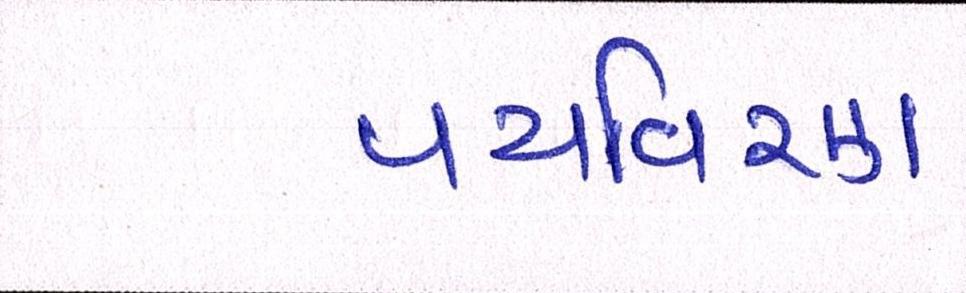 પયવિરણ